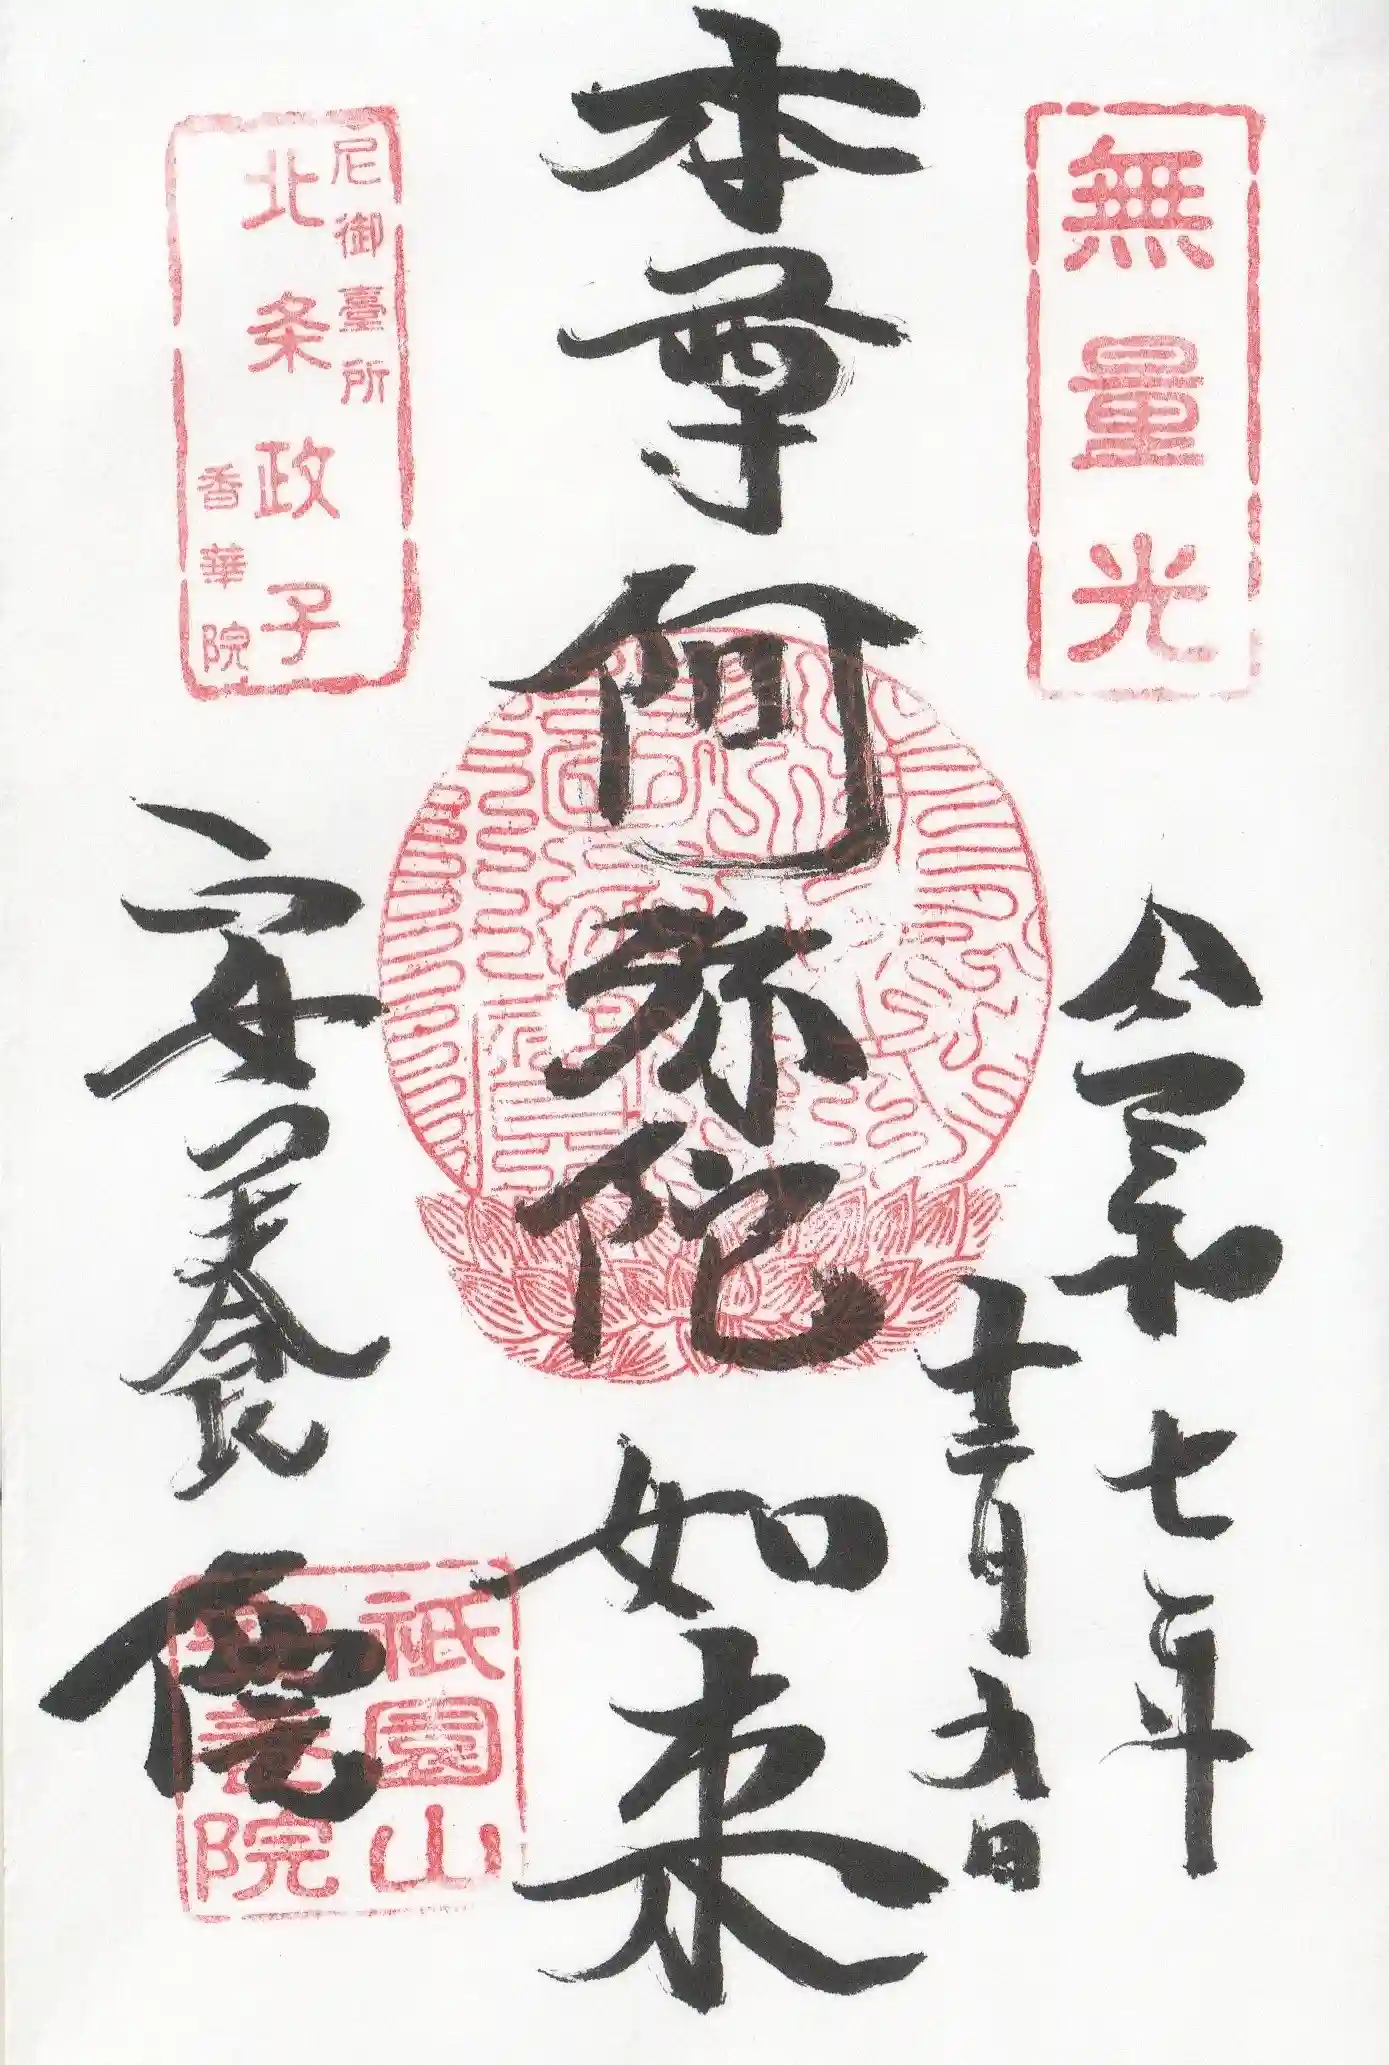 無量光
令和七年
十二月九日
本尊阿弥陀如来
尼御臺所
北条政子
香華院
安養院
祇園山
安養院